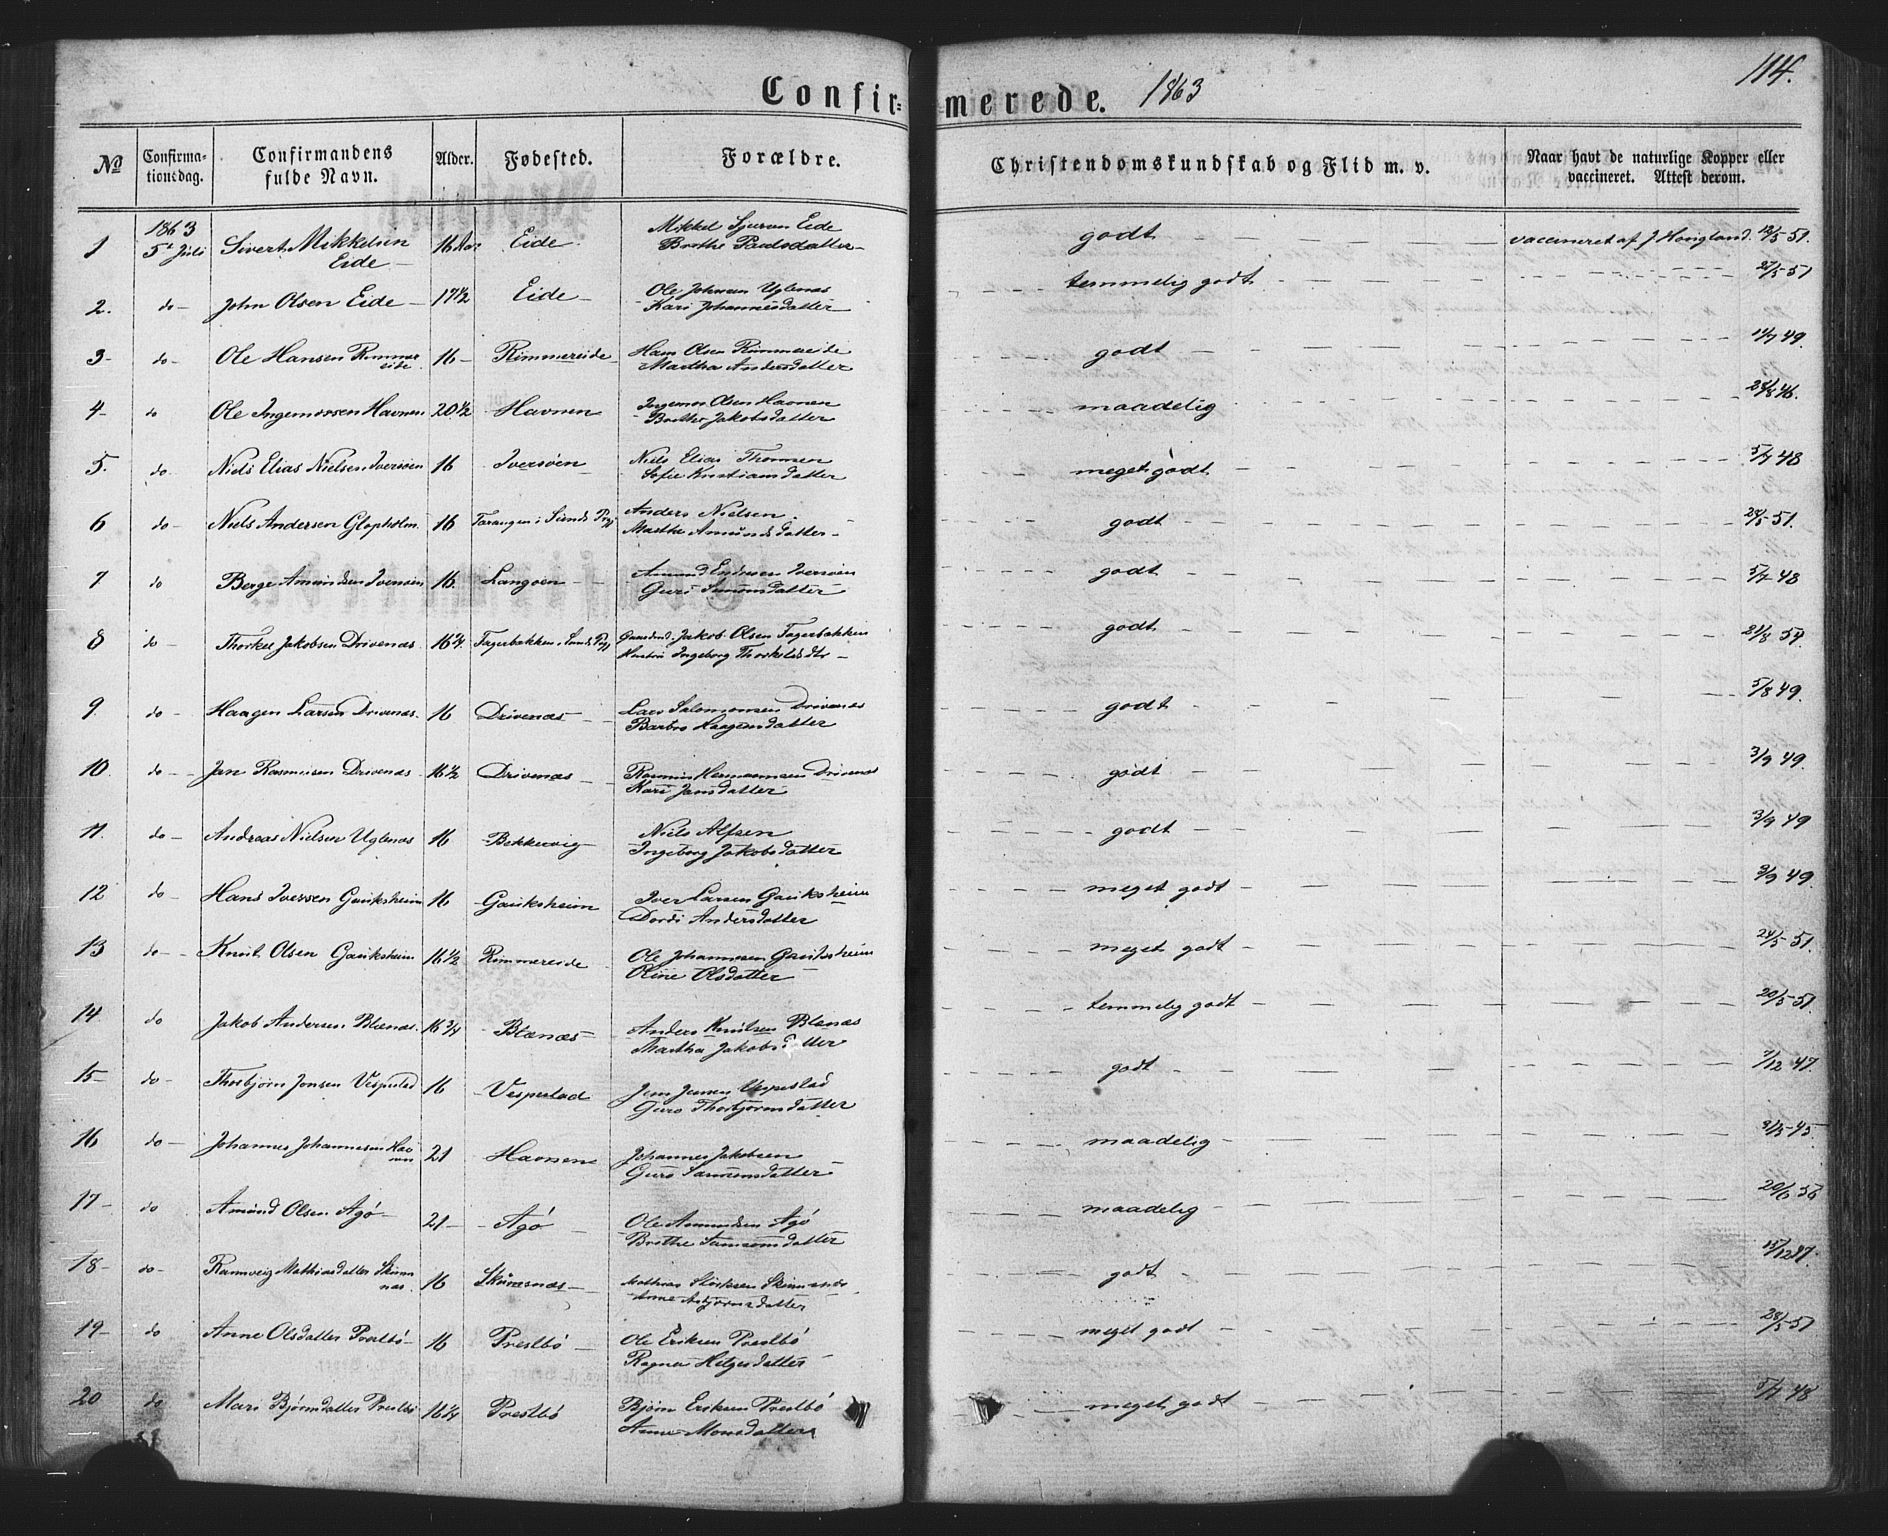 114.
Confirmerede. 1863
No
Confirmationsdag.
Confirmandens fulde Navn.
Alder.
Fødested.
Forældre.
Christendomskundskab og Flid m. v.
Naar havt de naturlige Kopper eller vaccineret. Attest derom.
1 1863 5t Juli Sivert Mikkelsen Eide 16 Aar Eide Mikkel Eide Brethe Paulsdatter godt vaccineret af J Hougland 12/5 51.
2. do John Olsen Eide 17 1/2 Eide Ole Johnsen Uglenæs Kari Johannesdatter temmelig godt 27/5 51
3 do Ole Hansen Rimmereide 16 Rimmereide Hans Olsen Rimmereide Martha Andersdatter godt 49.
4 do Ole Ingemorsen Havnen 20 1/2 Havnen Ingemor Olsen Havnen Brethe Jakobsdatter maadelig 46.
5. do Niels Elias Nielsen Iversøen 16 Iversøen Niels Elias Thomsen Sofie Kristiansdatter meget godt 5/7 48
6 do Niels Andersen Glopholm. 16 Tarangen i Anders Nielsen Marthe Amundsdatter godt 51.
7 do Berge Amundsen Iversøen 16. Langøen Amund Endresen Iversøen Guro Simonsdatter godt 5/7 48
8 do Thorkel Jakobsen Drivenæs 16 1/4 Fagerbakken Gaardmd. Jakob Olsen Fagerbakken Hustru Ingeborg Thorkelsdtr godt 21/8 54.
9. do Haagen Larsen Drivenæs 16 Drivenæs Lars Salomonsen Drivenæs Barbro Haagensdatter godt 5/8 49.
10. do Jan Rasmussen Drivenæs 16 1/2 Drivenæs Rasmus Hermansen Drivenæs Kari Jansdatter godt 3/9 49.
11. do Andreas Nielsen Uglenæs 16 Bekkervig Niels Alfsen Ingeborg Jakobsdatter godt 3/9 49
12 do Hans Iversen Gauksheim 16 Gauksheim Iver Larsen Gauksheim Dordi Andersdatter meget godt 3/9 49.
13 do Knut Olsen Gauksheim 16 1/2 Rimmereide Ole Johannesen Gauksheim Oline Olsdatter meget godt 24/5 51.
14 do Jakob Andersen Blænæs. 16 3/4 Blænæs Anders Knutsen Blænæs Martha Jakobsdatter temmelig godt 20/5 51.
15 do Thorbjørn Jonsen Vespestad 16 Vespestad Jon Jensen Vespestad Guro Thorbjørnsdatter godt 7/12 47.
16 do Johannes Johannesen Havnen 21 Havnen Johannes Jakobsen Guro Samsonsdatter maadelig 45.
17 do Amund Olsen Agø 21 Agø Ole Amundsen Agø Brethe Samsonsdatter maadelig 20/6 56
18 do Rannveig Mathiasdatter 16 Mathias Anne Asbjørnsdatter godt 15/12 47.
19 do Anne Olsdatter Prestbø 16 Prestbø Ole Eriksen Prestbø Ragna Helgesdatter meget godt 28/5 51
20 do Mari Bjørnsdatter Prestbø 16 1/4 Prestbø Bjørn Eriksen Prestbø Anne Monsdatter meget godt 5/7 48